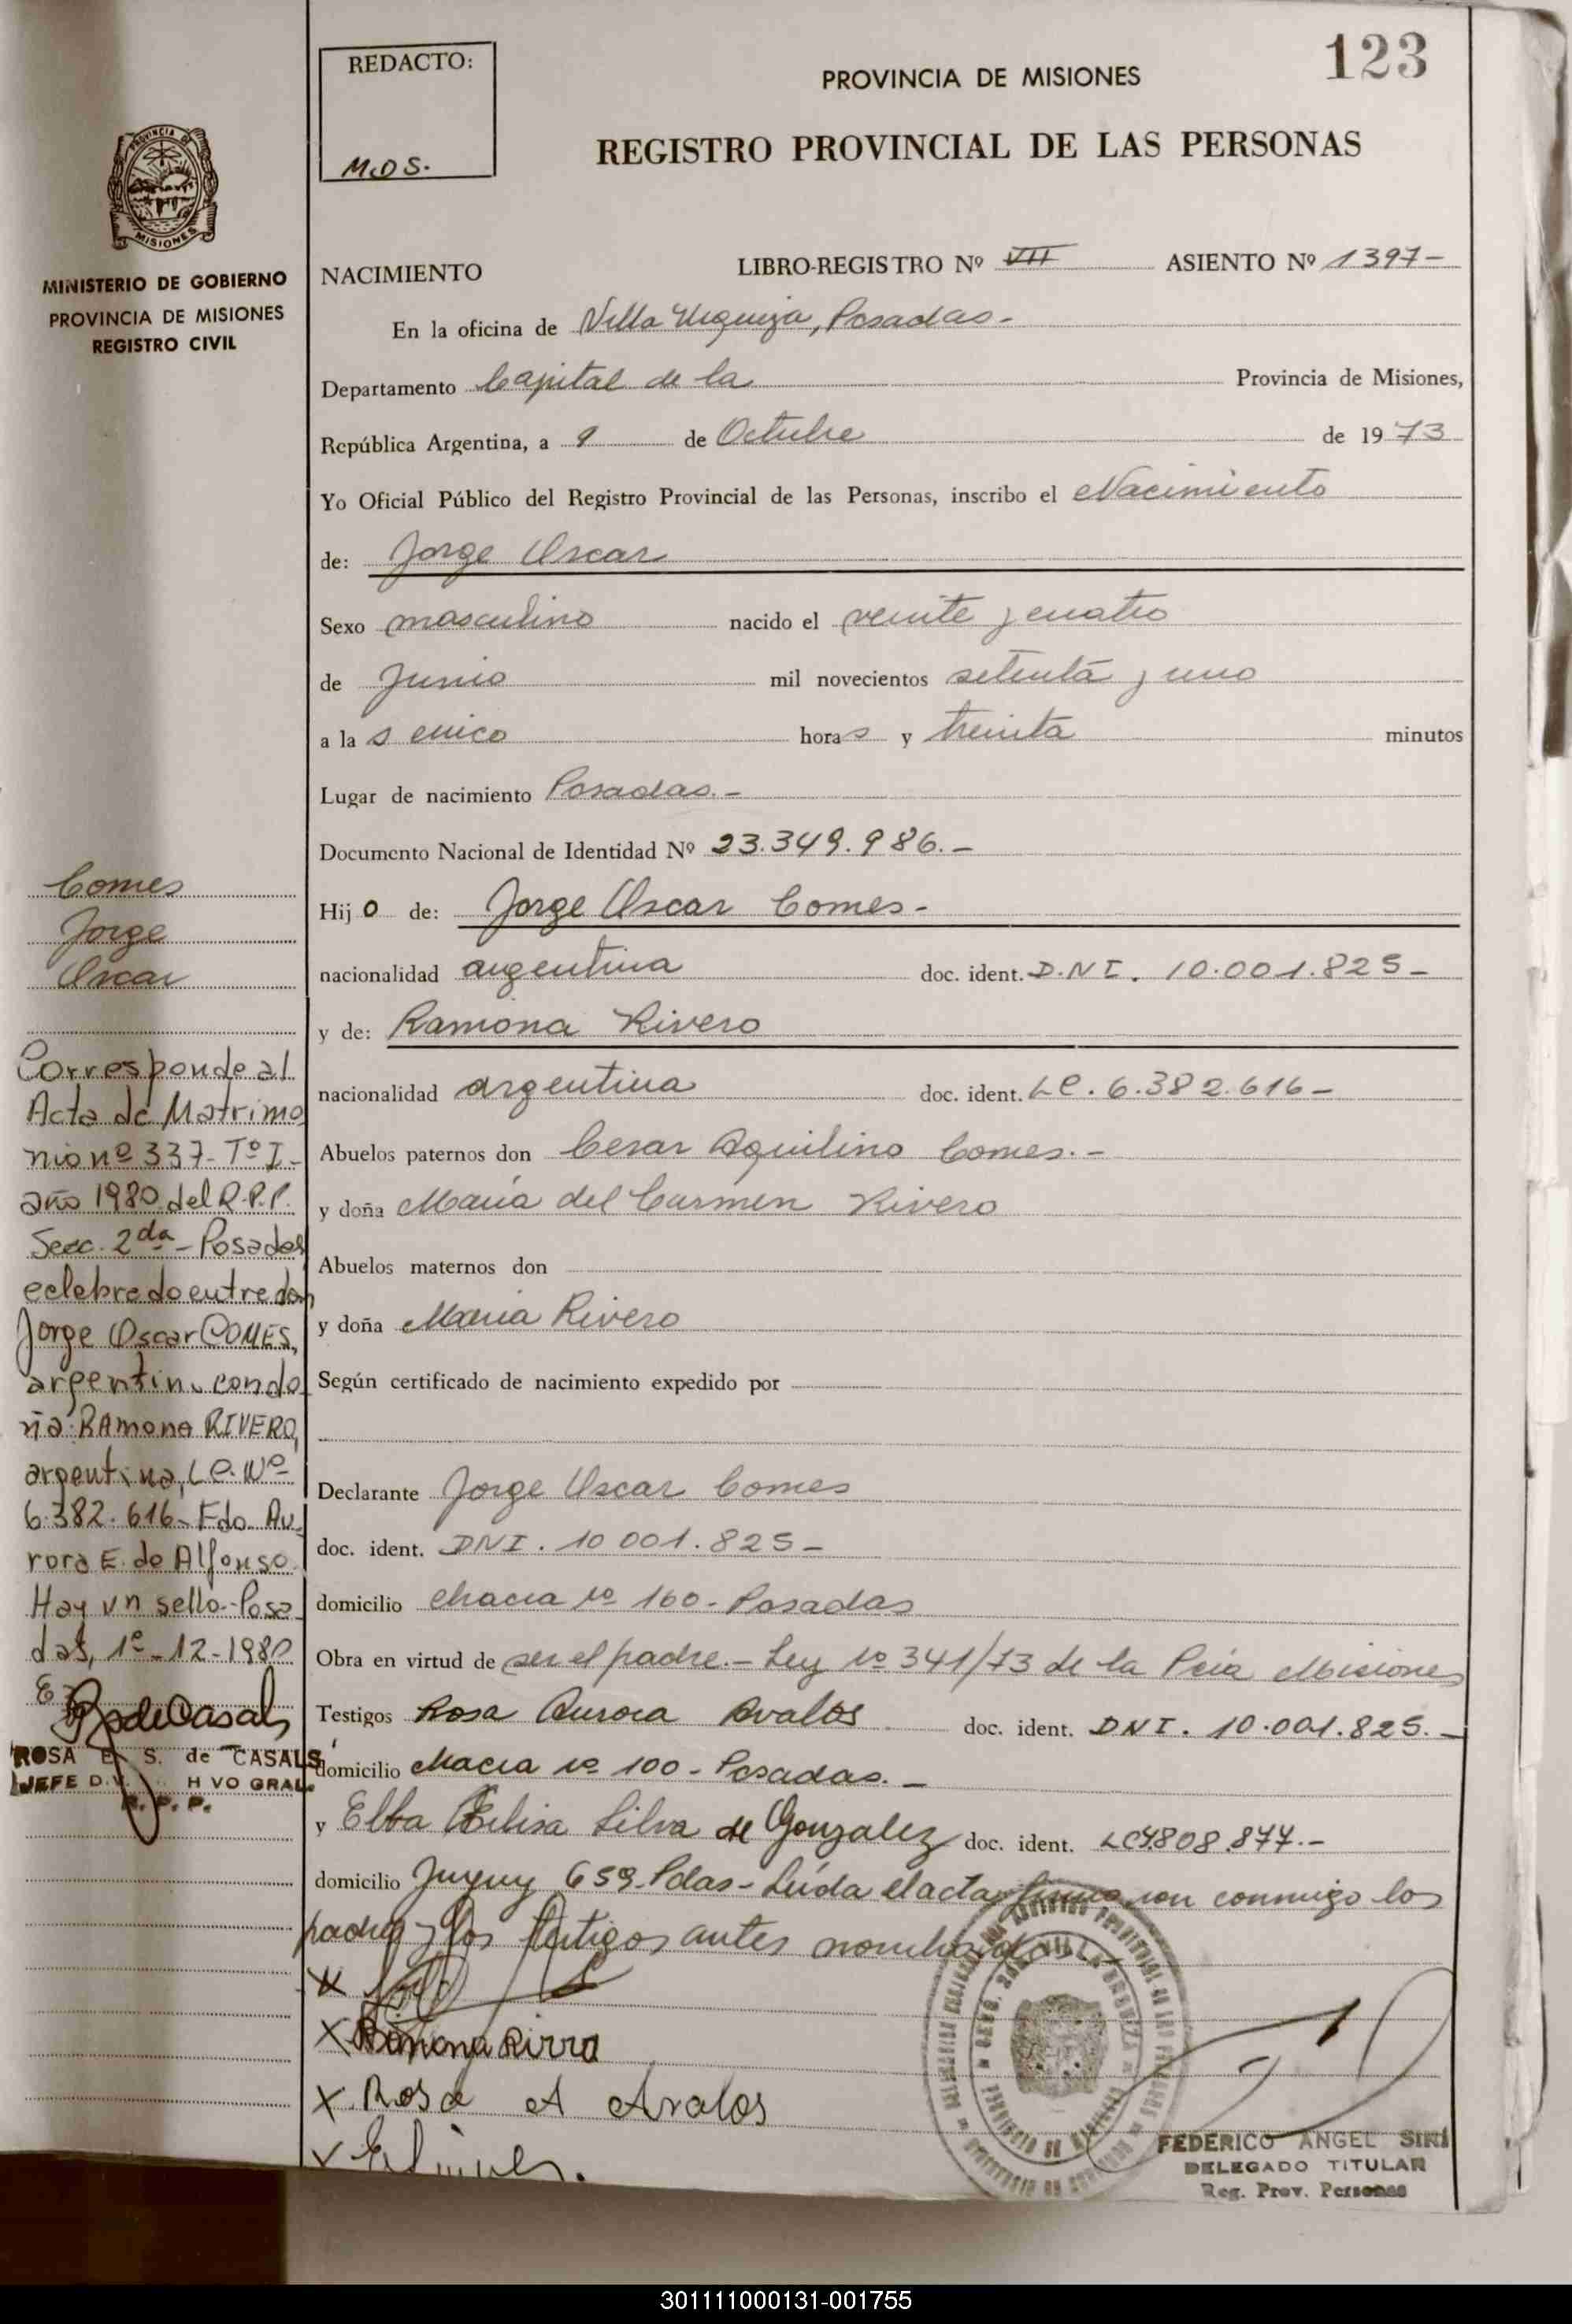 123
REDACTO:
M.D.S.
PROVINCIA DE MISIONES
REGISTRO PROVINCIAL DE LAS PERSONAS
PROVINCIA DE
MISIONES
MINISTERIO DE GOBIERNO
PROVINCIA DE MISIONES
REGISTRO CIVIL
NACIMIENTO LIBRO-REGISTRO Nº VII ASIENTO Nº 1397-
En la oficina de Villa Urquiza, Posadas-
Departamento Capital de la Provincia de Misiones,
República Argentina, a 9 de Octubre de 1973
Yo Oficial Público del Registro Provincial de las Personas, inscribo el Nacimiento
de: Jorge Oscar
Sexo masculino nacido el veinte y cuatro
de Junio mil novecientos setenta y uno
a las cinco horas y treinta minutos
Lugar de nacimiento Posadas.-
Documento Nacional de Identidad Nº 23.349.986.-
Hijo de: Jorge Oscar Comes-
nacionalidad argentina doc. ident. D.N.I. 10.001.825-
y de: Ramona Rivero
nacionalidad argentina doc. ident. LC. 6.382.616-
Abuelos paternos don Cesar Aquilino Comes.-
y doña María del Carmen Rivero
Abuelos maternos don
y doña María Rivero
Según certificado de nacimiento expedido por
Declarante Jorge Oscar Comes
doc. ident. DNI. 10 001.825-
domicilio chacra nº 160- Posadas
Obra en virtud de ser el padre.- Ley nº 341/73 de la Pcia Misiones
Testigos Rosa Aurora Avalos doc. ident. DNI. 10.001.825.-
domicilio chacra nº 100- Posadas.-
y Elba Silva de Gonzalez doc. ident. LC 4.808.877.-
domicilio Jujuy 659- Pdas- Leída el acta firmaron conmigo los
padres y los testigos antes nombrados
X
X Ramona Rirra
X Rosa A Avalos
FEDERICO ANGEL SIRI
DELEGADO TITULAR
Reg. Prov. Personas
Comes
Jorge
Oscar
Corresponde al
Acta de Matrimo
nio nº 337- Tº I-
año 1980 del R.P.P.
Secc. 2da- Posadas
celebrado entre don
Jorge Oscar COMES,
argentino con do
ña Ramona RIVERO,
argentina, LC. Nº
6.382.616- Fdo. Au
rora E. de Alfonso.
Hay un sello- Posa
das, 1º-12-1980
RosdeCasals
ROSA E. S. de CASALS
R. P. P.
301111000131-001755